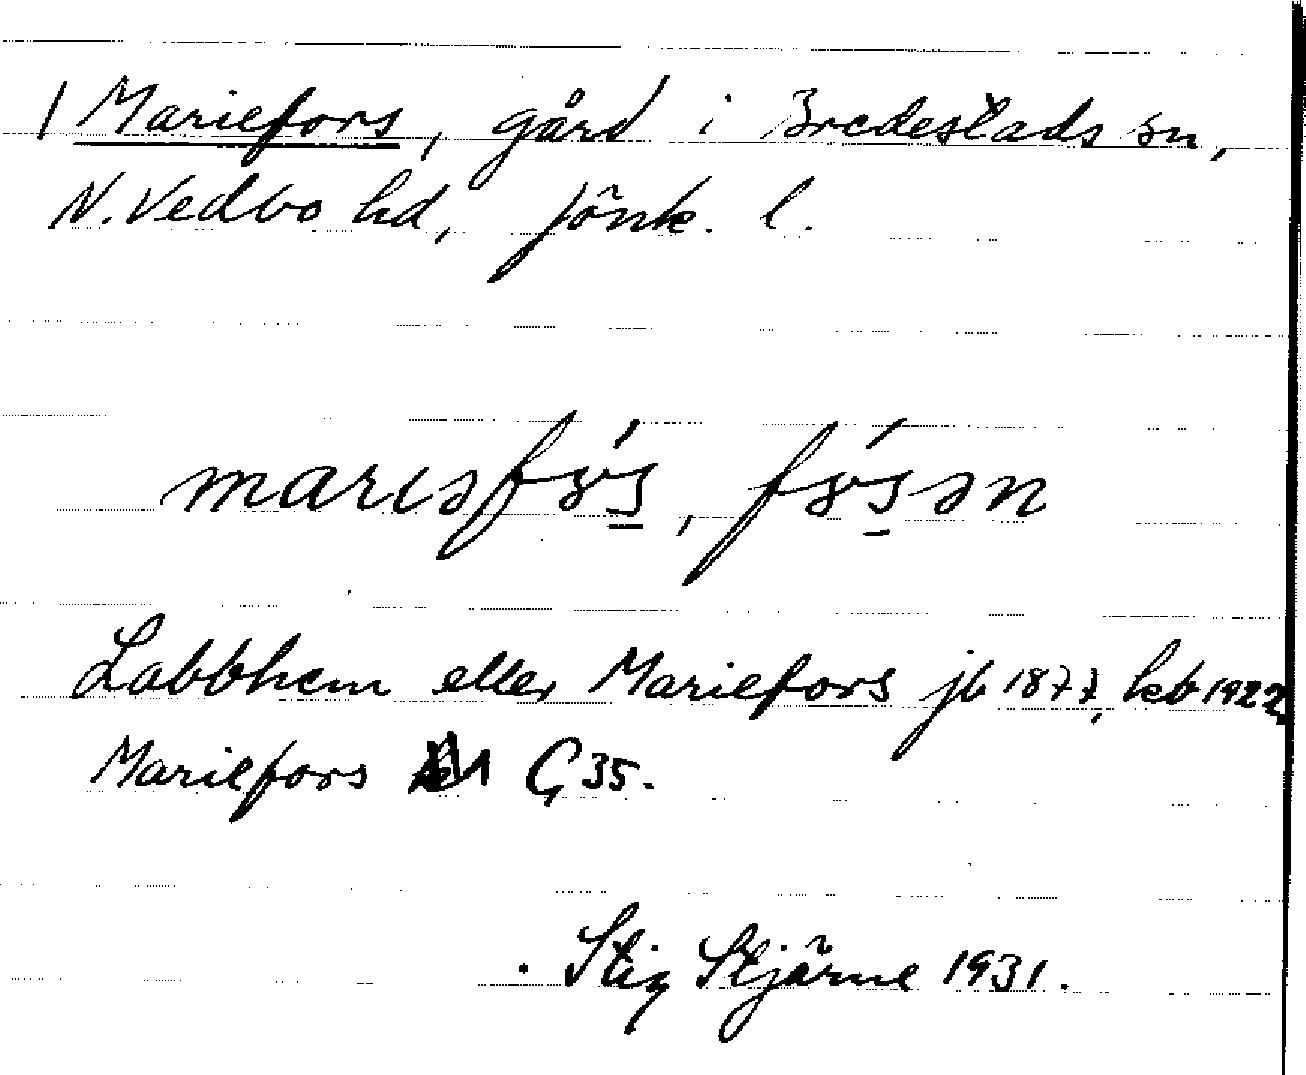 / Mariefors, gård i Bredestads sn,
N. Vedbo hd, Jönk. l.
Labbhem eller Mariefors jb 1877, kb 1922,
Mariefors G 35.
Stig Stjärne 1931.